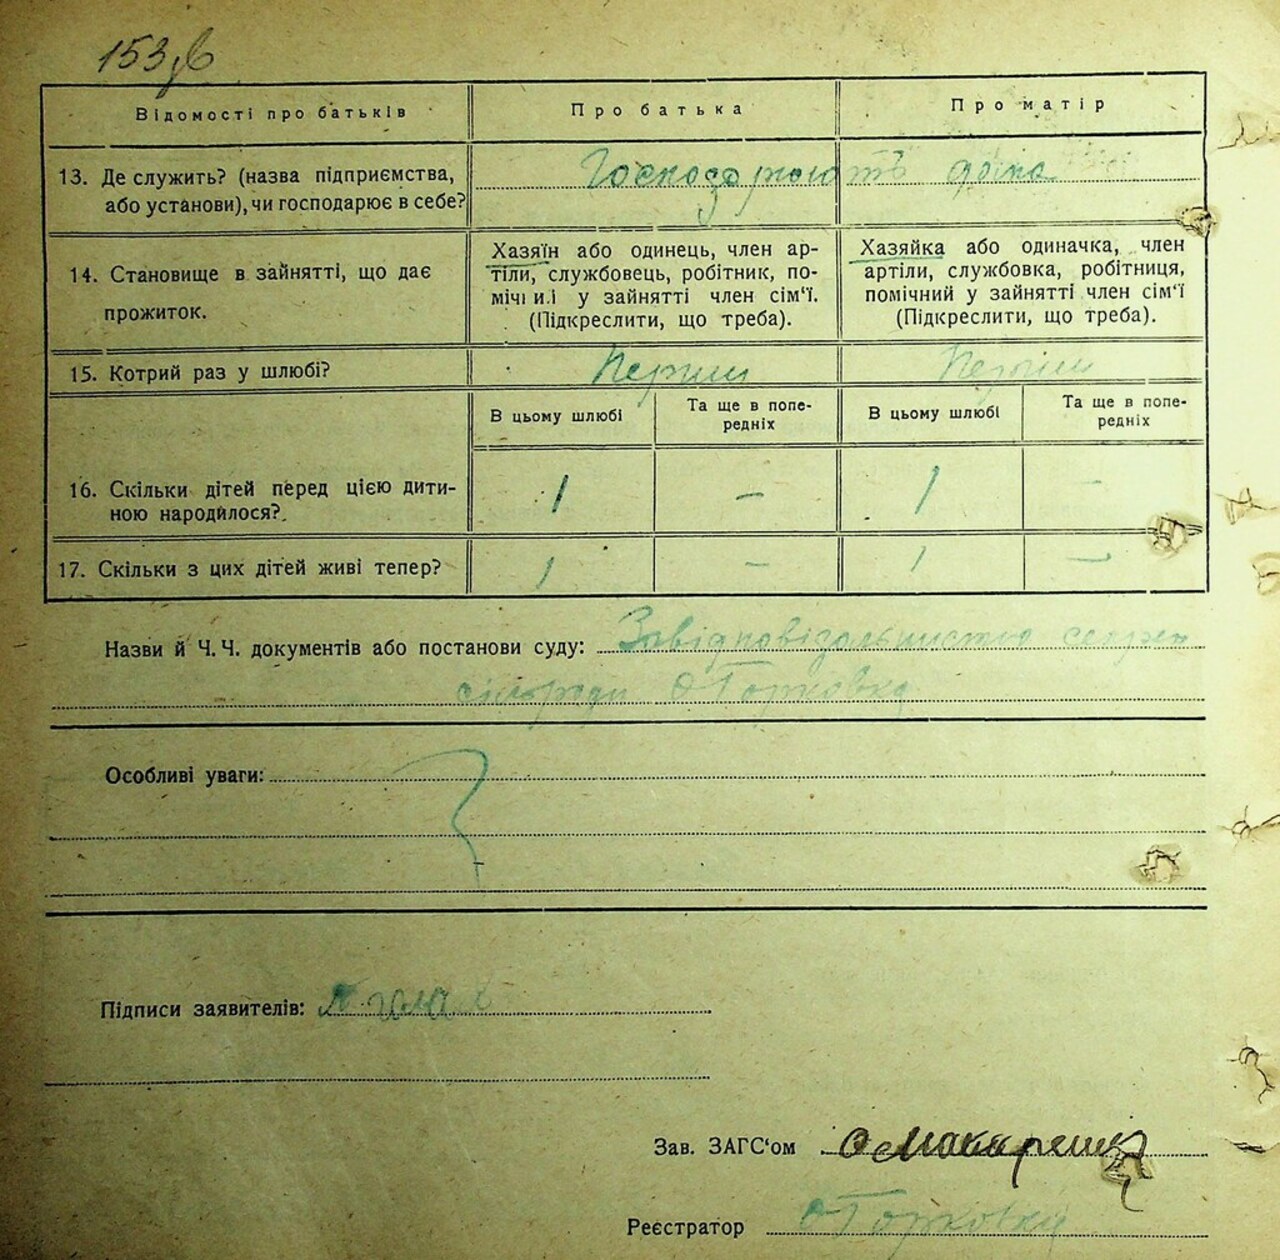 153
Відомості про батьків
Про батька
Про матір
13. Де служить? (назва підприємства,
або установи), чи господарює в себе?
Господарюють дома
14. Становище в зайнятті, що дає
прожиток.
Хазяїн або одинець, член ар-
тіли, службовець, робітник, по-
мічний у зайнятті член сім'ї.
(Підкреслити, що треба).
Хазяйка або одиначка, член
артіли, службовка, робітниця,
помічний у зайнятті член сім'ї
(Підкреслити, що треба).
15. Котрий раз у шлюбі?
Перший
Перший
В цьому шлюбі
Та ще в попе-
редніх
В цьому шлюбі
Та ще в попе-
редніх
16. Скільки дітей перед цією дити-
ною народилося?
1
—
1
—
17. Скільки з цих дітей живі тепер?
1
—
1
—
Назви й Ч. Ч. документів або постанови суду: За відповідальністю секрет
сільради
Особливі уваги:
Підписи заявителів:
Зав. ЗАГС'ом
Реєстратор